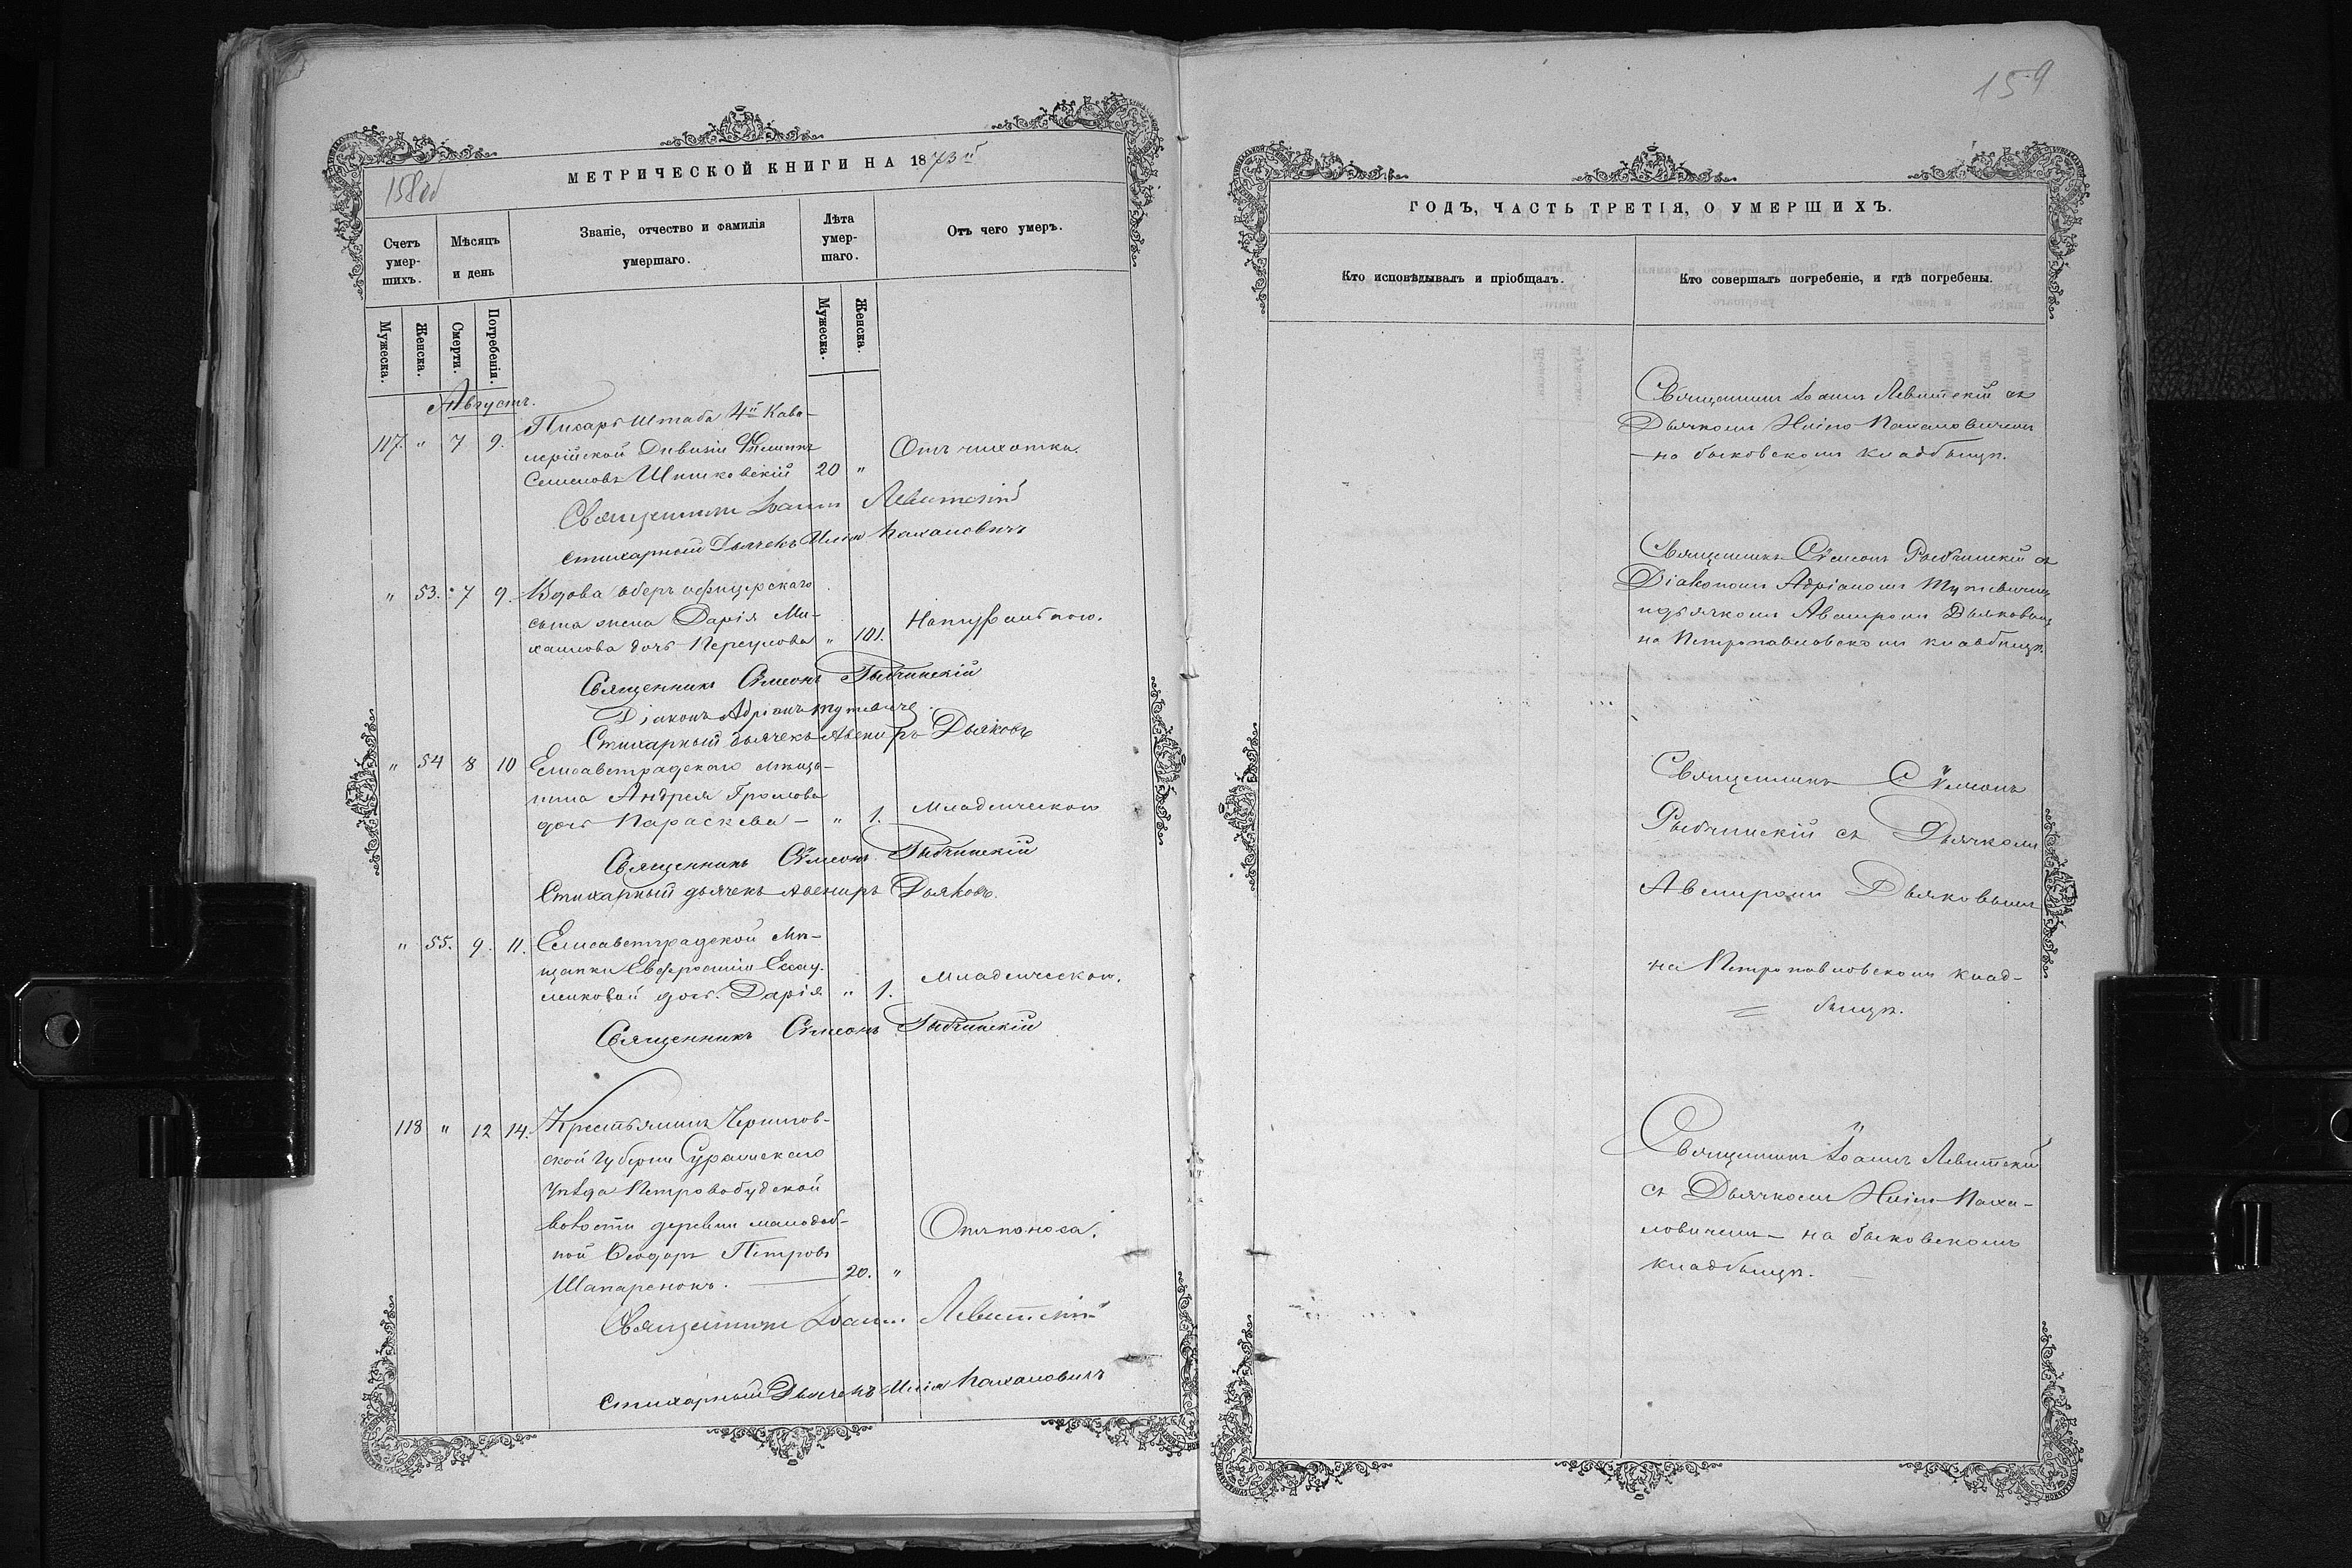 158 об
МЕТРИЧЕСКОЙ КНИГИ НА 1873й
Счетъ умер-шихъ.
Мѣсяцъ и день
Званіе, отчество и фамилія умершаго.
Лѣта умер-шаго.
Отъ чего умеръ.
Мужеска.
Женска.
Смерти.
Погребенія.
Мужеска.
Женска.
Августъ.
Писарь Штаба 4й Кава-
117. " 7 9. лерійской Дивизіи
Семеновъ Шишковскій 20 " Отъ чихотки.
Священникъ Іоаннъ Левитскій
Стихарный Дьячекъ Илія Каханович
" 53. 7 9. Вдова оберъ офицерскаго
сына жена Дарія Ми-
хаилова дочь " 101. Натуральною.
Священникъ Сѵмеонъ Рыбчинскій
Діаконъ Адріанъ
Стихарный дьячекъ Авениръ Дьяковъ
" 54 8 10 Елисаветградскаго мѣща-
нина Андрея Громова
дочь Параскева — " 1. Младенческою
Священникъ Сѵмеонъ Рыбчинскій
Стихарный дьячекъ Авениръ Дьяковъ.
" 55. 9. 11. Елисаветградской Мѣ-
щанки Евфросиніи
дочь Дарія " 1. Младенческою.
Священникъ Сѵмеонъ Рыбчинскій
118 " 12 14. Крестьянинъ Чернигов-
ской Губерніи Суражскаго
уѣзда Петровобудской
волости деревни
Ѳеодоръ Петровъ
Шапаренокъ. — 20. " Отъ поноса.
Священникъ Іоаннъ Левитскій
Стихарный Дьячекъ Илія Каханович
159
ГОДЪ, ЧАСТЬ ТРЕТІЯ, О УМЕРШИХЪ.
Кто исповѣдывалъ и пріобщалъ.
Кто совершалъ погребеніе, и гдѣ погребены.
Священникъ Іоаннъ Левитскій съ
Дьячкомъ Иліею Кахановичемъ
— на быковскомъ кладбищѣ.
Священникъ Сѵмеонъ Рыбчинскій съ
Діакономъ Адріаномъ
и дьячкомъ Авениромъ Дьяковымъ
на Петропавловскомъ кладбищѣ.
Священникъ Сѵмеонъ
Рыбчинскій съ Дьячкомъ
Авениромъ Дьяковымъ
на Петропавловскомъ клад-
= бищѣ.
Священникъ Іоаннъ Левитскій
съ Дьячкомъ Иліею Каха-
новичемъ — на быковскомъ
кладбищѣ. —